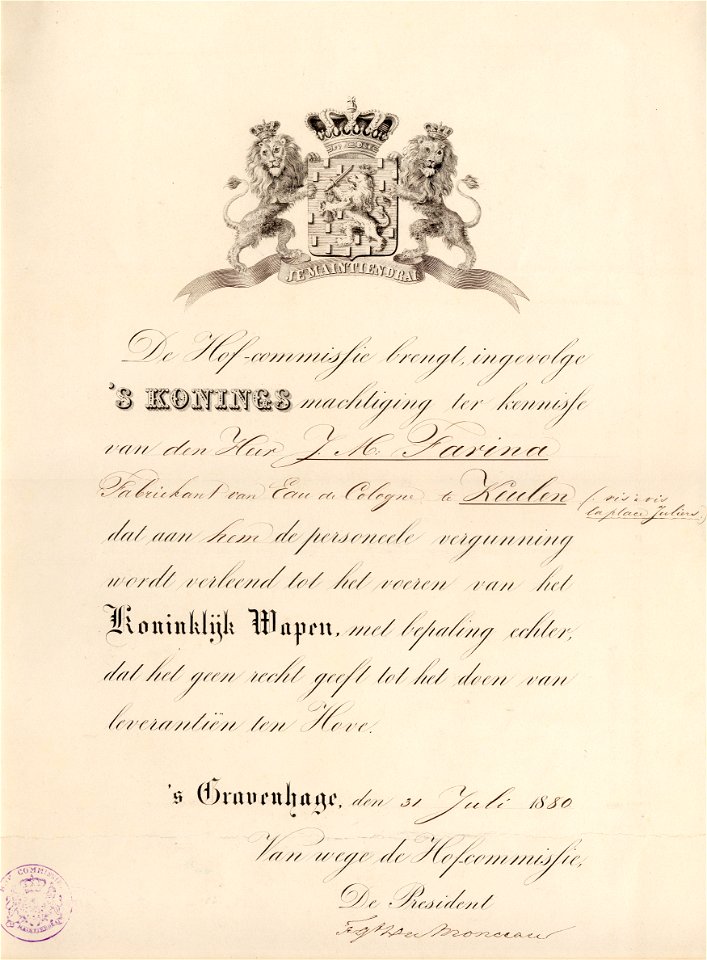 JE MAINTIENDRAI
De Hof-commissie brengt, ingevolge
'S KONINGS machtiging ter kennisse
van den Heer J. M. Farina
Fabriekant van Eau de Cologne te Keulen (: vis à vis
la place Juliers.)
dat aan hem de personeele vergunning
wordt verleend tot het voeren van het
Koninklijk Wapen, met bepaling echter,
dat het geen recht geeft tot het doen van
leverantiën ten Hove.
's Gravenhage, den 31 Juli 1880
Van wege de Hofcommissie,
De President
COMMISSIE